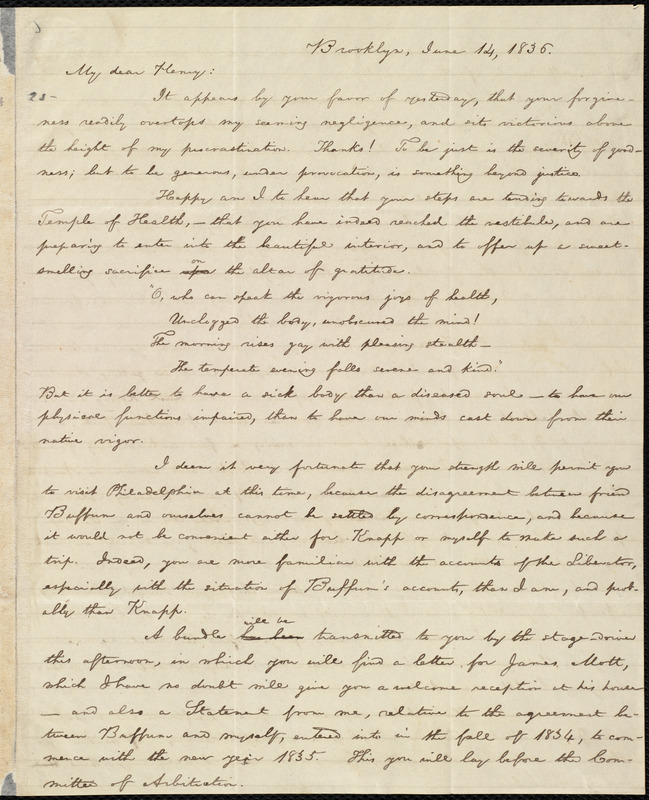 Brooklyn, June 14, 1836.
My dear Henry:
25-
It appears by your favor of yesterday, that your forgive-
ness readily overtops my seeming negligence, and sits victorious above
the height of my procrastination. Thanks! To be just is the severity of good-
ness; but to be generous, under provocation, is something beyond justice.
Happy am I to hear that your steps are tending towards the
Temple of Health, – that you have indeed reached the vestibule, and are
preparing to enter into the beautiful interior, and to offer up a sweet-
smelling sacrifice on the altar of gratitude.
"O, who can speak the vigorous joys of health,
Unclogged the body, unobscured the mind!
The morning rises gay with pleasing stealth –
The temperate evening falls serene and kind."
But it is better to have a sick body than a diseased soul – to have our
physical functions impaired, than to have our minds cast down from their
native vigor.
I deem it very fortunate that your strength will permit you
to visit Philadelphia at this time, because the disagreement between friend
Buffum and ourselves cannot be settled by correspondence, and because
it would not be convenient either for Knapp or myself to make such a
trip. Indeed, you are more familiar with the accounts of the Liberator,
especially with the situation of Buffum's accounts, than I am, and prob-
ably than Knapp.
A bundle has been will be transmitted to you by the stage-driver
this afternoon, in which you will find a letter for James Mott,
which I have no doubt will give you a welcome reception at his house
– and also a Statement from me, relative to the agreement be-
tween Buffum and myself, entered into in the fall of 1834, to com-
mence with the new year 1835. This you will lay before the Com-
mittee of Arbitration.